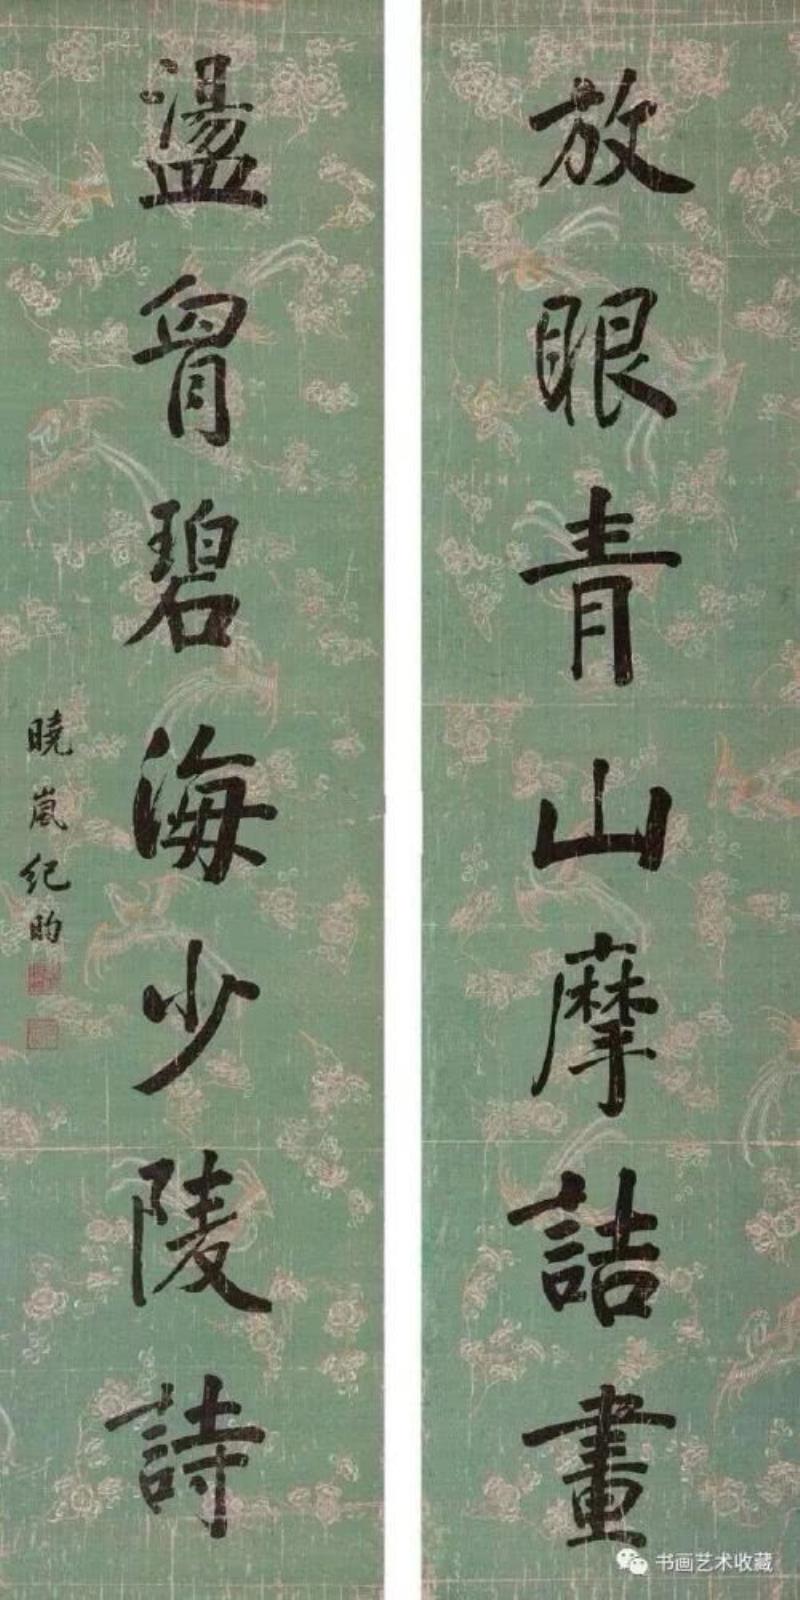 放眼青山摩詰畫
盪胷碧海少陵詩
曉嵐紀昀
书画艺术收藏